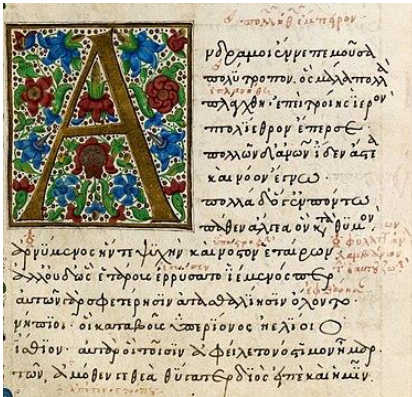 Ἄνδρα μοι ἔννεπε μοῦσα
πολύτροπον. ὃς μάλα πολλὰ
πλάγχθη· ἐπεὶ τροίης ἱερὸν
πτολίεθρον ἔπερσε·
πολλῶν δ' ἀνῶν ἴδεν ἄστεα
καὶ νόον ἔγνω
πολλὰ δ' ὅγ' ἐν πόντω
πάθεν ἄλγεα ὃν κατὰ θυμὸν
ἀρνύμενος ἥν τε ψυχὴν καὶ νόστον ἑταίρων
ἀλλ' οὐδ' ὣς ἑτάρους ἐρρύσατο ἱέμενός περ
αὐτῶν γὰρ σφετέρησιν ἀτασθαλίησιν ὄλοντο
νήπιοι· οἳ κατὰ βοῦς ὑπερίονος ἠελίοιο
ἤσθιον· αὐτὰρ ὁ τοῖσιν ἀφείλετο νόστιμον ἦμαρ
τῶν, ἁμόθεν γε θεὰ θύγατερ διὸς εἰπὲ καὶ ἡμῖν.